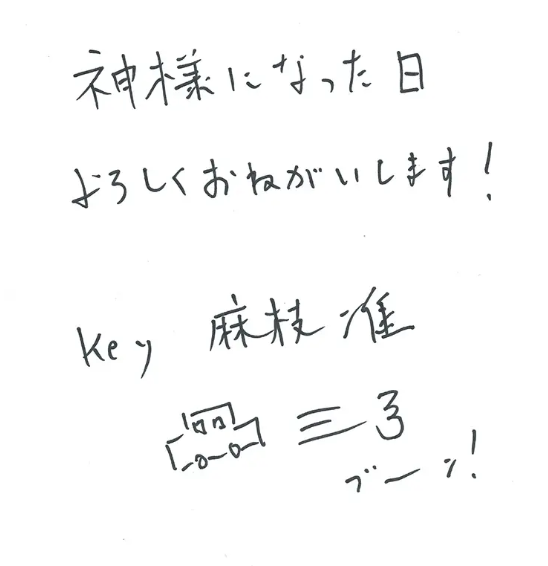 神様になった日
よろしくおねがいします!
Key 麻枝准
ブーン!